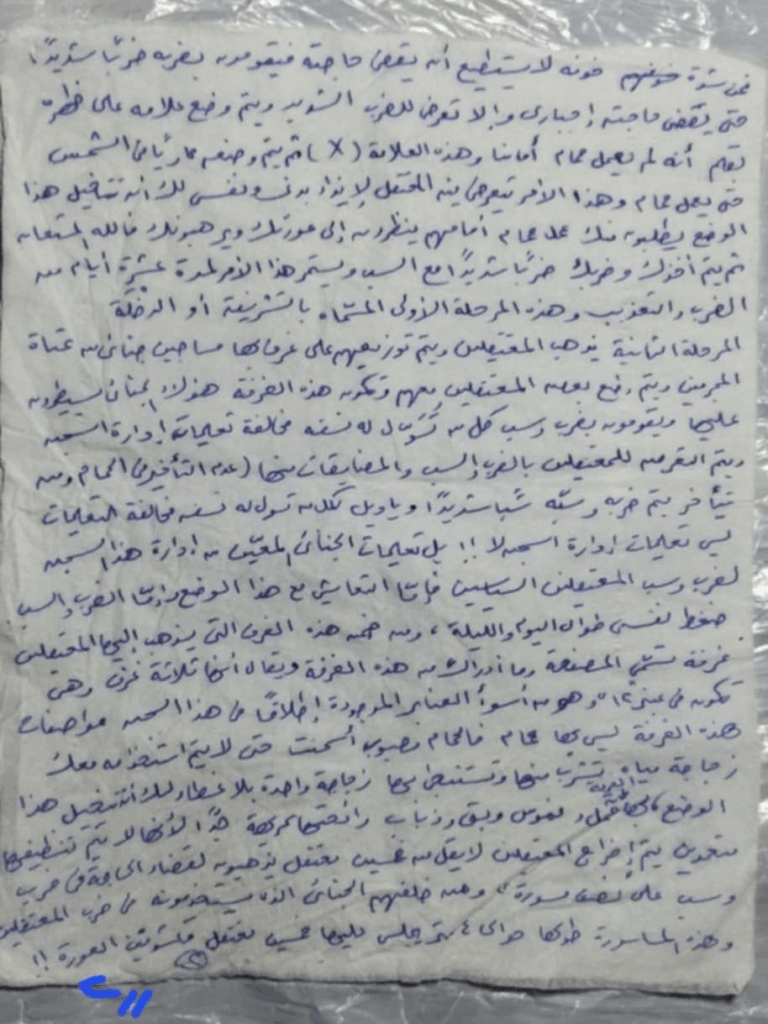 من شدة خوفهم خوفه لا يستطيع أن يقضي حاجته فيقومون بضربه ضربًا شديدًا
حتى يقضي حاجته إجباري وإلا تعرض للضرب الشديد ويتم وضع علامه على ظهره
تعلم أنه لم يعمل حمام أمامنا وهذه العلامة (X) ثم يتم وضعه عاريًا في الشمس
حتى يعمل حمام وهذا الأمر يتعرض فيه المعتقل لإيذاء بدني ونفسي لك أن تتخيل هذا
الوضع يطلبون منك عمل حمام أمامهم ينظرون إلى عورتك ويرهبونك فالله المستعان
ثم يتم أخذك وضربك ضربًا شديدًا مع السب ويستمر هذا الأمر لمدة عشرة أيام من
الضرب والتعذيب وهذه المرحلة الأولى المسماه بالتشريفة أو الدخلة
المرحلة الثانية يذهب المعتقلين ويتم توزيعهم على غرف بها مساجين جنائي من عتاة
المجرمين ويتم وضع بعض المعتقلين معهم وتكون هذه الغرفة هؤلاء الجنائي يسيطرون
عليها ويقومون بضرب وسب كل من تسول له نفسه مخالفة تعليمات إدارة السجن
ويتم التعرض للمعتقلين بالضرب والسب والمضايقات منها (عدم التأخير في الحمام ومن
يتأخر يتم ضربه وسبّه سبًا شديدًا ويا ويل لكل من تسول له نفسه مخالفة التعليمات
ليس تعليمات إدارة السجن لا !! بل تعليمات الجنائي المعيّن من إدارة هذا السجن
لضرب وسب المعتقلين السياسيين فإمّا التعايش مع هذا الوضع وإمّا الضرب والسب
ضغط نفسي طوال اليوم والليلة، ومن ضمن هذه الغرف التي يذهب إليها المعتقلين
غرفة تسمّي المصنعة وما أدراك من هذه الغرفة ويقال أنها ثلاثة غرف وهى
تكون في عنبر "١٢" وهو من أسوأ العنابر الموجودة إطلاقًا في هذا السجن مواصفات
هذه الغرفة ليس بها حمام فالحمام مصبوب أسمنت حتى لا يتم استخدامه معك
زجاجة مياه تشرب منها وتستنجى بها زجاجة واحدة بلا غطاء لك أن تتخيل هذا
الوضع كما بها نمل وناموس وبق وذباب رائحتها كريهة جدًا لأنها لا يتم تنظيفها
متعمدين يتم إخراج المعتقلين لا يقل عن خمسين معتقل يذهبون لقضاء الحاجة في ضرب
وسب على نصف ماسورة، ومن خلفهم الجنائي الذي يستخدمونه في ضرب المعتقلين
وهذه الماسورة طولها حوالى ٤ متر يجلس عليها خمسين معتقل مكشوفين العورة !!
(٢)
"ب